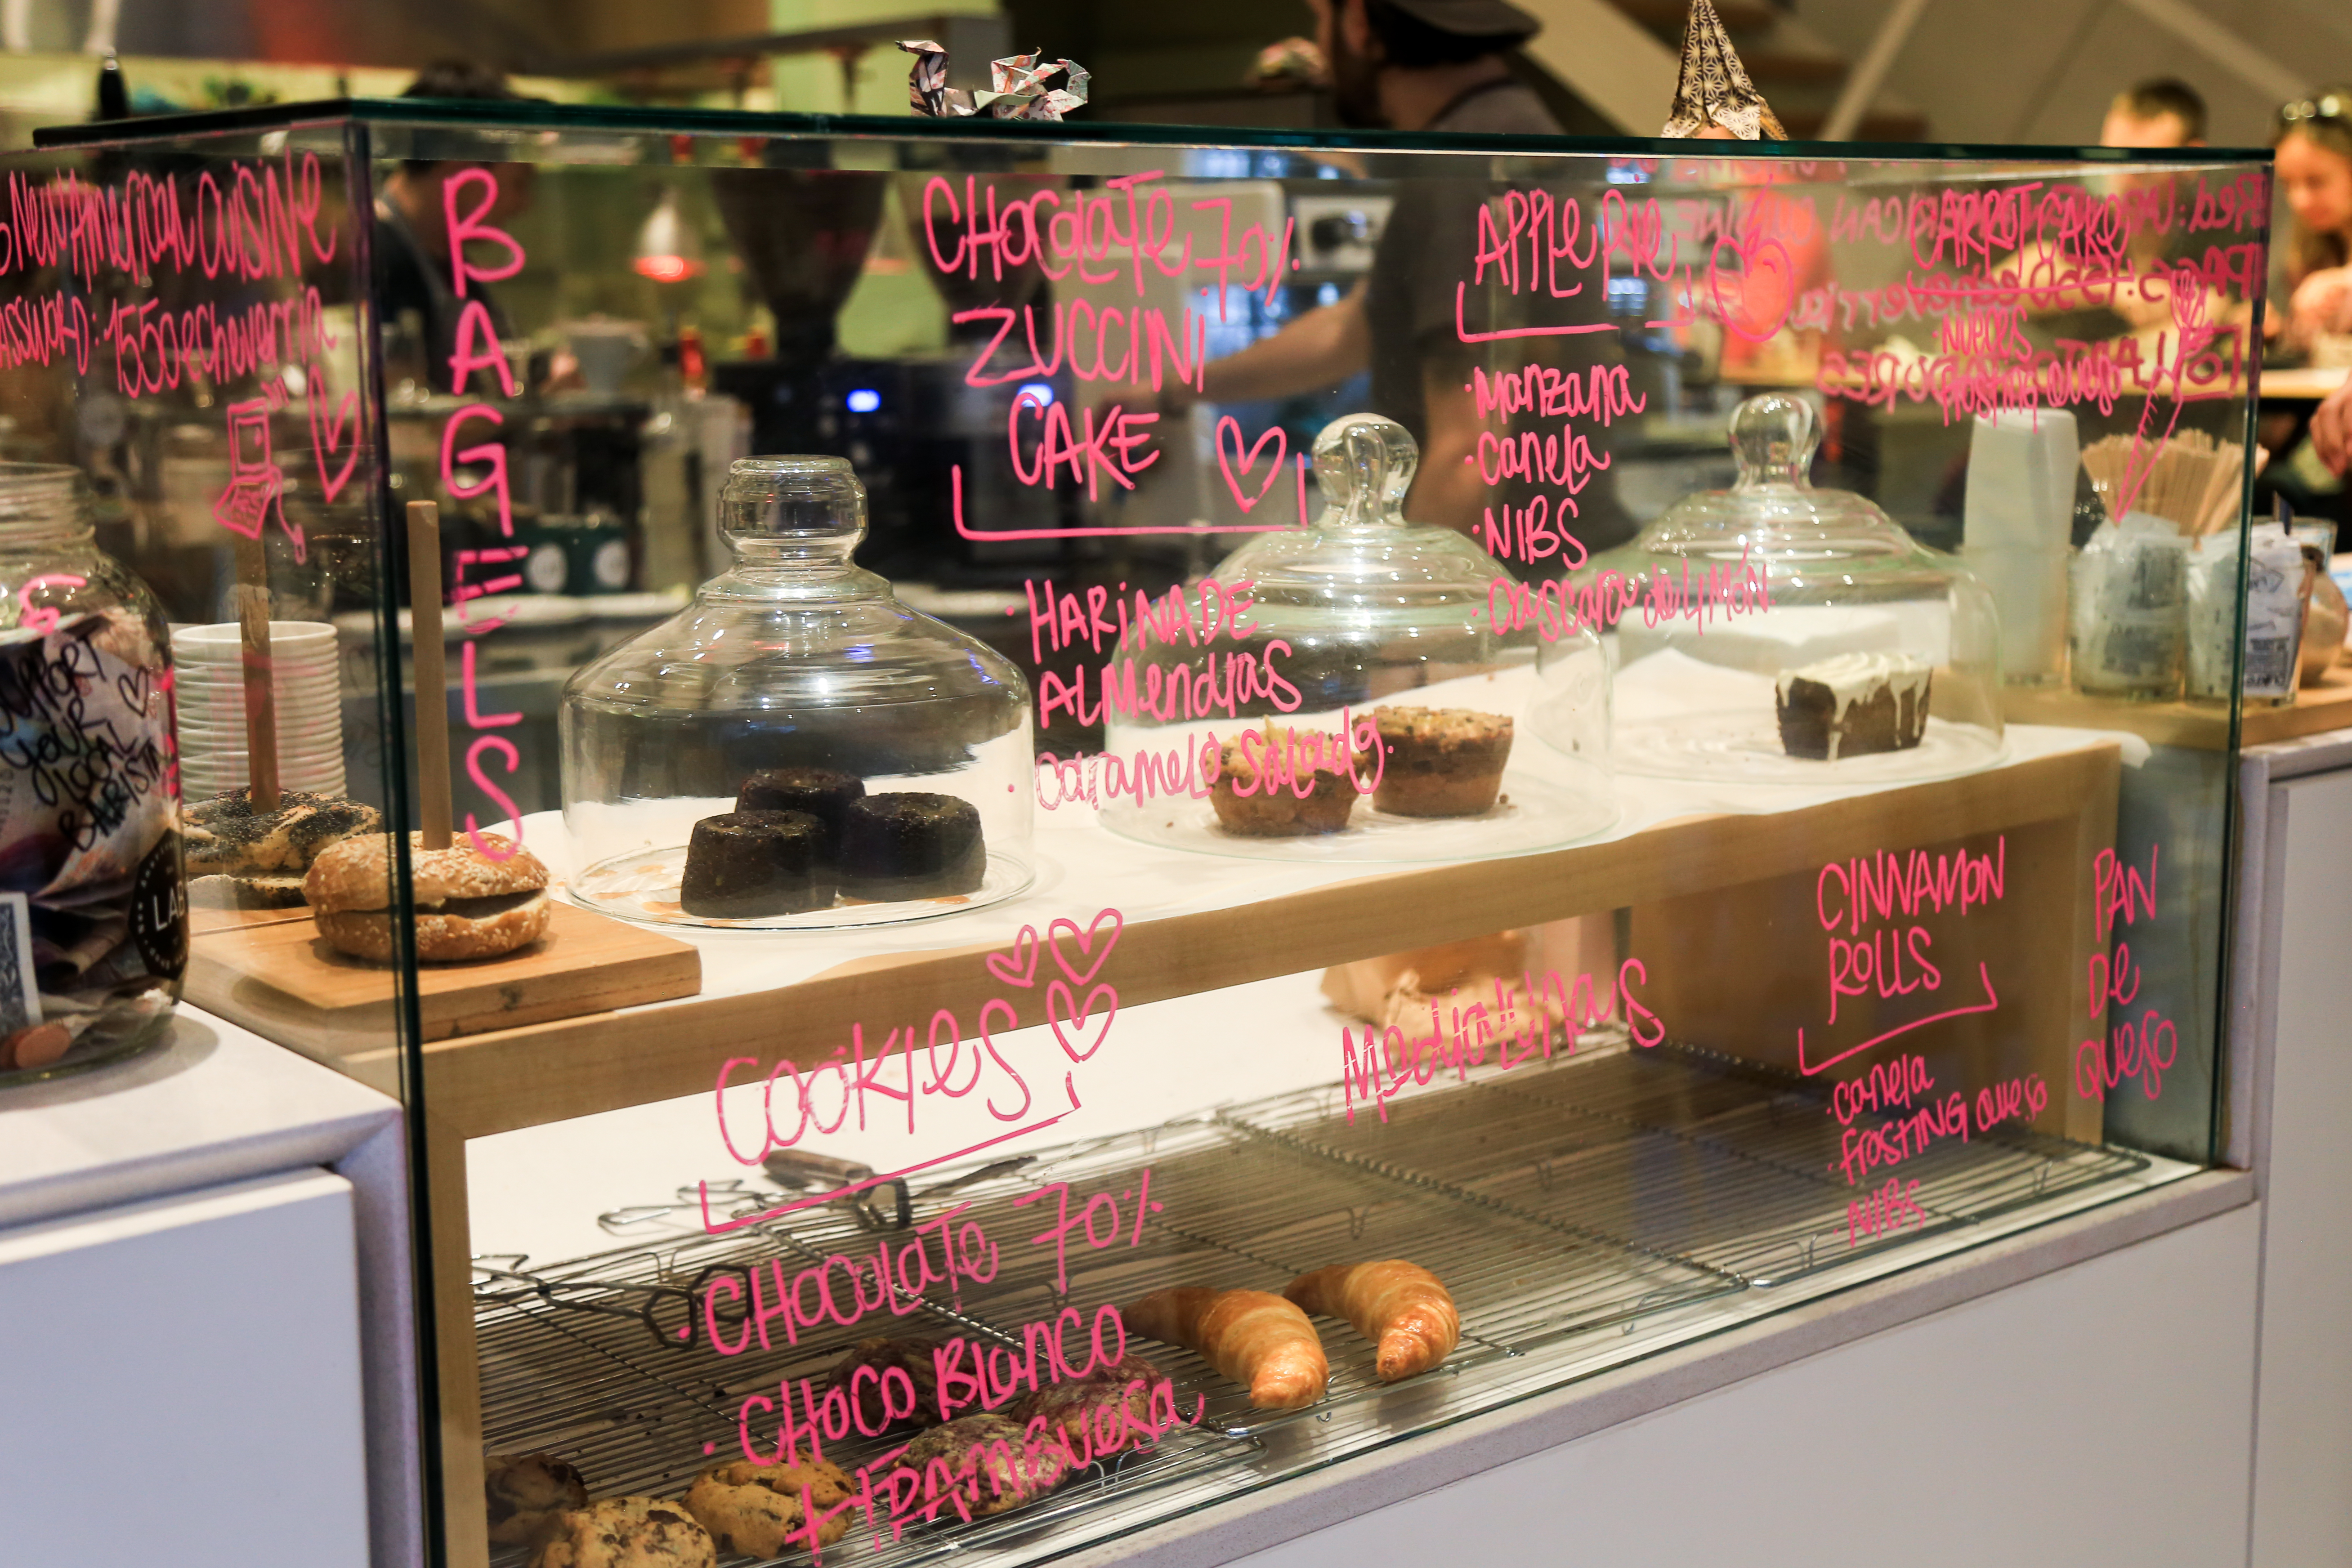 New American Cuisine
ASSWORD: 1550echeverria
SUPPORT
YOUR
LOCAL
BARISTA
LAB
BAGELS
CHocolaTe 70%
ZUCCINI
CAKE
· HARINA DE
ALMendras
· caramelo salado.
APPle PIe
· manzana
· canela
· NIBS
· cascara de LIMÓN
CARROT CAKE
nueces
frosting queso
COOKIES
· CHocolaTe 70%
· CHOCO BLanco
+ FRAMBUesa
MedialUNAS
CINNAMON
ROLLS
· canela
· FROSTING Queso
· NIBS
PAN
De
Queso